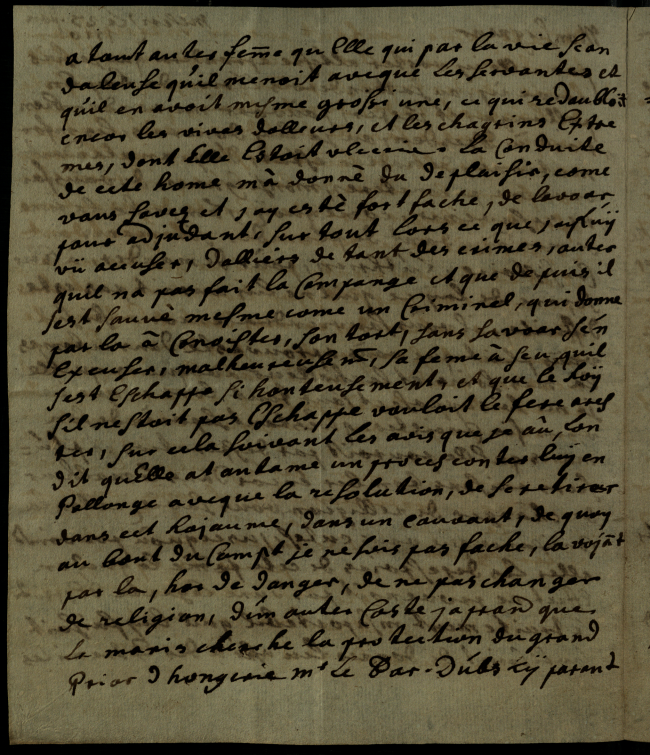 a tout autes fem̅e qu Elle qui par la vie scan
daleuse quil menoit aveque les servantes et
quil en avoit mesme grossi une, ce qui redoubloit
encor les vives dolleurs, et les chagrins Extre
mes, dont Elle Estoit La Conduite
de cete home m'à donnè du deplaisir, come
vous savez et j ay estè fort fache, de lavoar
pour adjudant, sur tout lors ce que j ay luÿ
vü acuser, dalliers de tant des crimes, autes
quil na pas fait la Compange et que depuis il
sest sauvè mesme come un Criminel, qui donne
par la à Conoistes, son tort, sans savoar s'en
Excuser, malheureusem̅t, sa feme à seu quil
sest Eschappe si honteusement, et que le Roÿ
sil nestoit pas Eschappe vouloit le fere ares
tes, sur cela suivant les avis que je aü, lon
dit quElle at antame un proces contes luÿ en
Pollonge aveque la resolution, de se retirer
dans cet Rojaume, dans un couvant, de quoy
au bout du Compt je ne suis pas fache, la vojant
par la, hor de danger, de ne pas changer
de religion, dun autes Coste j aprand que
Le maris cherche la protection du grand
Prior d hongerie mr Le Bar. parent